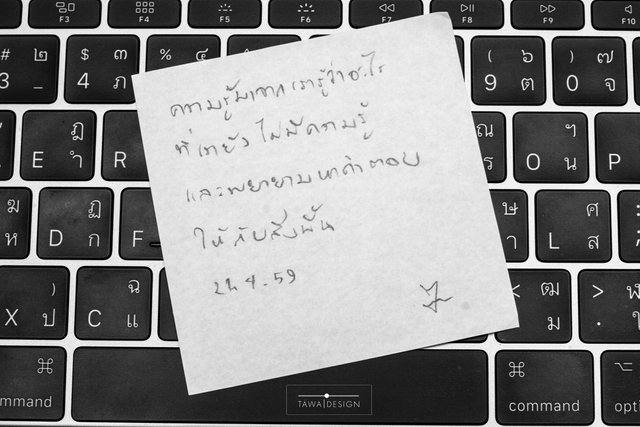 F3
F4
F5
F6
F7
F8
F9
# ๒
3 -
$ ๓
4 ภ
% ๔
( ๖
9 ต
) ๗
0 จ
ความรู้มาจากเรารู้ว่าอะไร
ที่เรายังไม่มีความรู้
และพยายามหาคำตอบ
ให้กับสิ่งนั้น
24.4.59
E ฎ ำ
R
ณ
O ฯ น
ฆ ห
D ฏ ก
F
ษ
L ศ ส
X ) ป
C ฉ แ
< ฒ ม
> ฬ
command
command
TAWA|DESIGN